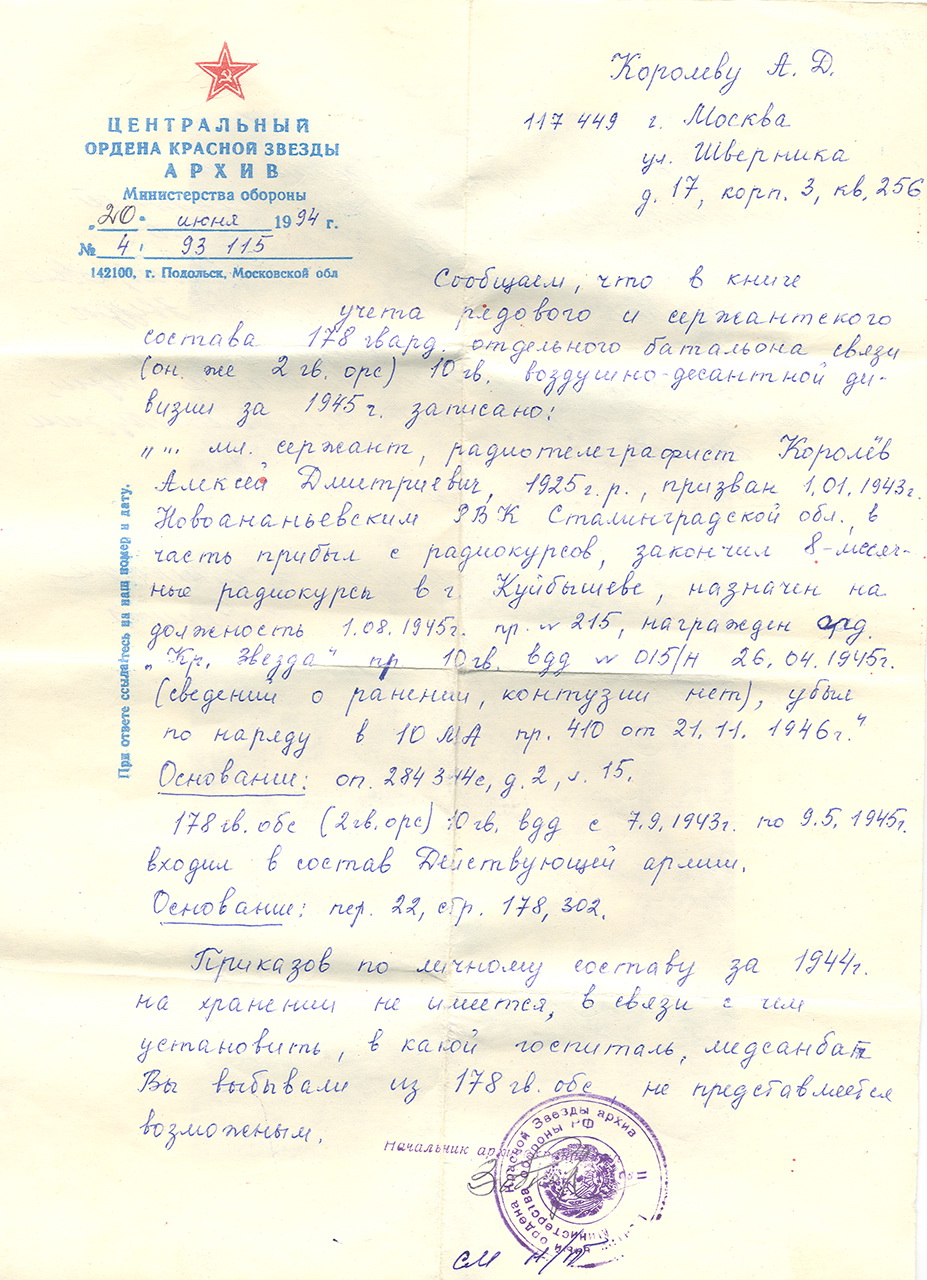 ЦЕНТРАЛЬНЫЙ
ОРДЕНА КРАСНОЙ ЗВЕЗДЫ
АРХИВ
Министерства обороны
„20" июня 1994 г.
№ 4 / 93 115
142100, г. Подольск, Московской обл
Королеву А. Д.
117 449 г. Москва
ул. Шверника
д. 17, корп. 3, кв. 256
Сообщаем, что в книге
учета рядового и сержантского
состава 178 гвард. отдельного батальона связи
(он. же 2 гв. орс) 10 гв. воздушно-десантной ди-
визии за 1945 г. записано:
„... мл. сержант, радиотелеграфист Королёв
Алексей Дмитриевич, 1925 г.р., призван 1.01.1943г.
Новоананьевским РВК Сталинградской обл., в
часть прибыл с радиокурсов, закончил 8-месяч-
ные радиокурсы в г. Куйбышеве, назначен на
должность 1.08.1945г. пр. № 215, награжден орд.
„Кр. Звезда" пр 10 гв. вдд № 015/н 26.04.1945г.
(сведений о ранении, контузии нет), убыл
по наряду в 10 МА пр. 410 от 21.11.1946г."
Основание: оп. 284344с, д. 2, л. 15.
178 гв. обс (2 гв. орс) 10 гв. вдд с 7.9.1943г. по 9.5.1945г.
входил в состав Действующей армии.
Основание: пер. 22, стр. 178, 302.
Приказов по личному составу за 1944г.
на хранении не имеется, в связи с чем
установить, в какой госпиталь, медсанбат
Вы выбывали из 178 гв. обс не представляется
возможным.
При ответе ссылайтесь на наш номер и дату.
Начальник
ордена Красной Звезды архив
Министерства обороны РФ